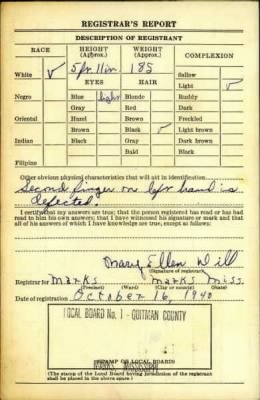 REGISTRAR'S REPORT
DESCRIPTION OF REGISTRANT
RACE HEIGHT (Approx.) WEIGHT (Approx.) COMPLEXION
White ✓ 5ft. 11in. 185 Sallow
EYES HAIR Light ✓
Negro Blue light Blonde Ruddy
Gray Red Dark
Oriental Hazel Brown Freckled
Brown Black ✓ Light brown
Indian Black Gray Dark brown
Bald Black
Filipino
Other obvious physical characteristics that will aid in identification
Second finger on left hand is
defected.
I certify that my answers are true; that the person registered has read or has had
read to him his own answers; that I have witnessed his signature or mark and that
all of his answers of which I have knowledge are true, except as follows:
Mary Ellen Dill
(Signature of registrar)
Registrar for Marks Marks Miss.
(Precinct) (Ward) (City or county) (State)
Date of registration October 16, 1940
LOCAL BOARD No. 1 - QUITMAN COUNTY
MARKS, MISSISSIPPI
(STAMP OF LOCAL BOARD)
(The stamp of the Local Board having jurisdiction of the registrant
shall be placed in the above space)